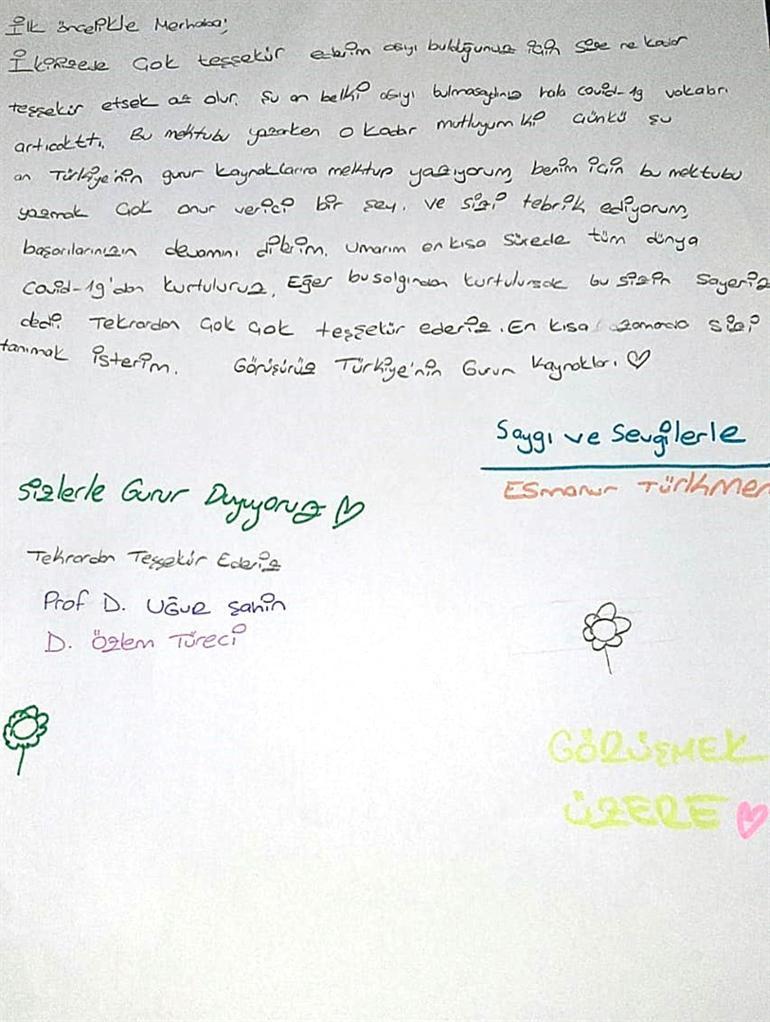 İlk öncelikle Merhaba;
İkinside Çok teşşekür ederim aşıyı bulduğunuz için size ne kadar
teşşekür etsek az olur. Şu an belki aşıyı bulmasaydınız hala covid-19 vakaları
artıcaktı. Bu mektubu yazarken o kadar mutluyum ki çünkü şu
an Türkiye'nin gurur kaynaklarına mektup yazıyorum, benim için bu mektubu
yazmak çok onur verici bir şey. ve sizi tebrik ediyorum,
başarılarınızın devamını dilerim. Umarım en kısa sürede tüm dünya
Covid-19'dan kurtuluruz. Eğer bu salgından kurtulursak bu sizin sayeniz
dedi. Tekrardan çok çok teşşekür ederiz. En kısa zamanda sizi
tanımak isterim. Görüşürüz Türkiye'nin Gurur Kaynakları
Saygı ve Sevgilerle
Esmanur Türkmen
Sizlerle Gurur Duyuyoruz
Tekrardan Teşşekür Ederiz
Prof D. Uğur Şahin
D. Özlem Türeci
GÖRÜŞMEK
ÜZERE